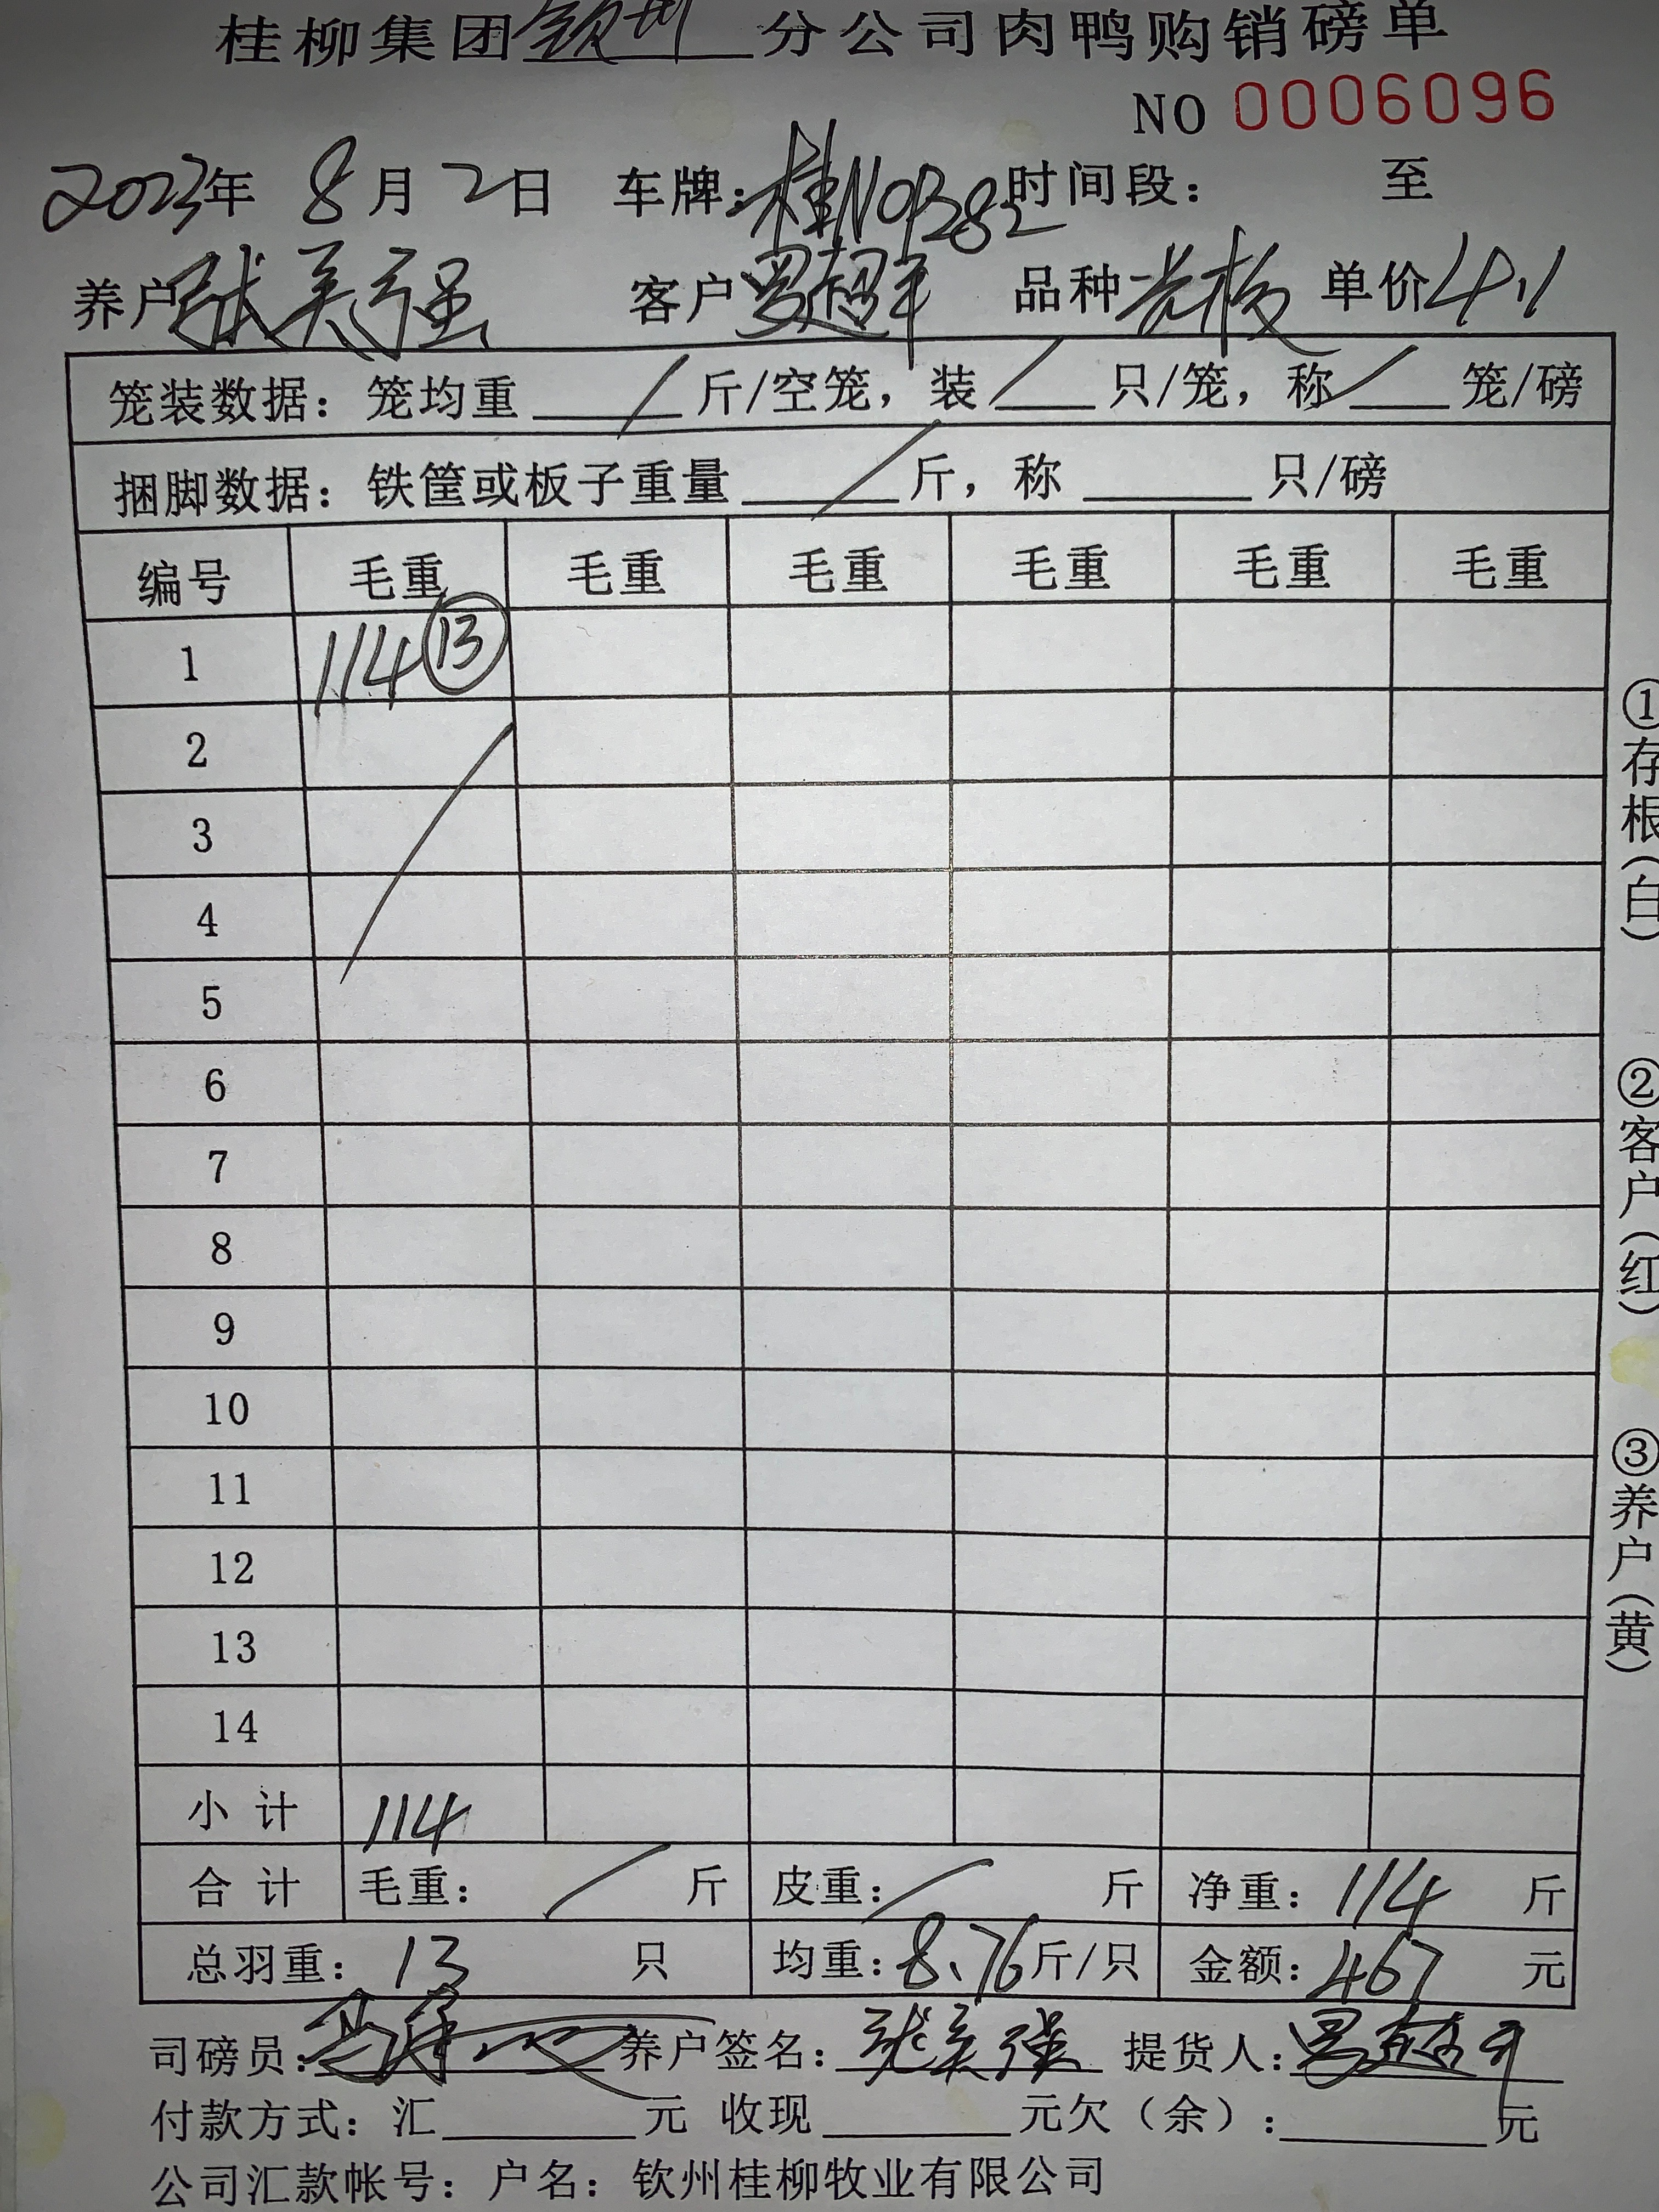 桂柳集团钦州分公司肉鸭购销磅单
NO 0006096
2023年 8月 2日 车牌:桂N0B382 时间段: 至
养户张美强 客户 品种 单价4.1
笼装数据: 笼均重 / 斤/空笼, 装 / 只/笼, 称 / 笼/磅
捆脚数据: 铁筐或板子重量 / 斤, 称 只/磅
编号 毛重 毛重 毛重 毛重 毛重 毛重
1 114 ⑬
2
3
4
5
6
7
8
9
10
11
12
13
14
小计 114
合计 毛重: / 斤 皮重: / 斤 净重: 114 斤
总羽重: 13 只 均重: 8.76斤/只 金额: 467 元
司磅员: 养户签名: 张美强 提货人:
付款方式: 汇 元 收现 元欠(余): 元
公司汇款帐号: 户名: 钦州桂柳牧业有限公司
①存根(白)
②客户(红)
③养户(黄)